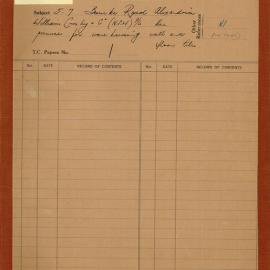 Subject 5-7 Road Alexandria
William Crosby & Co (NSW) P/L Use
premises for warehousing wall and
floor tiles
Other References
T.C. Papers No. 1
No. DATE RECORD OF CONTENTS No. DATE RECORD OF CONTENTS